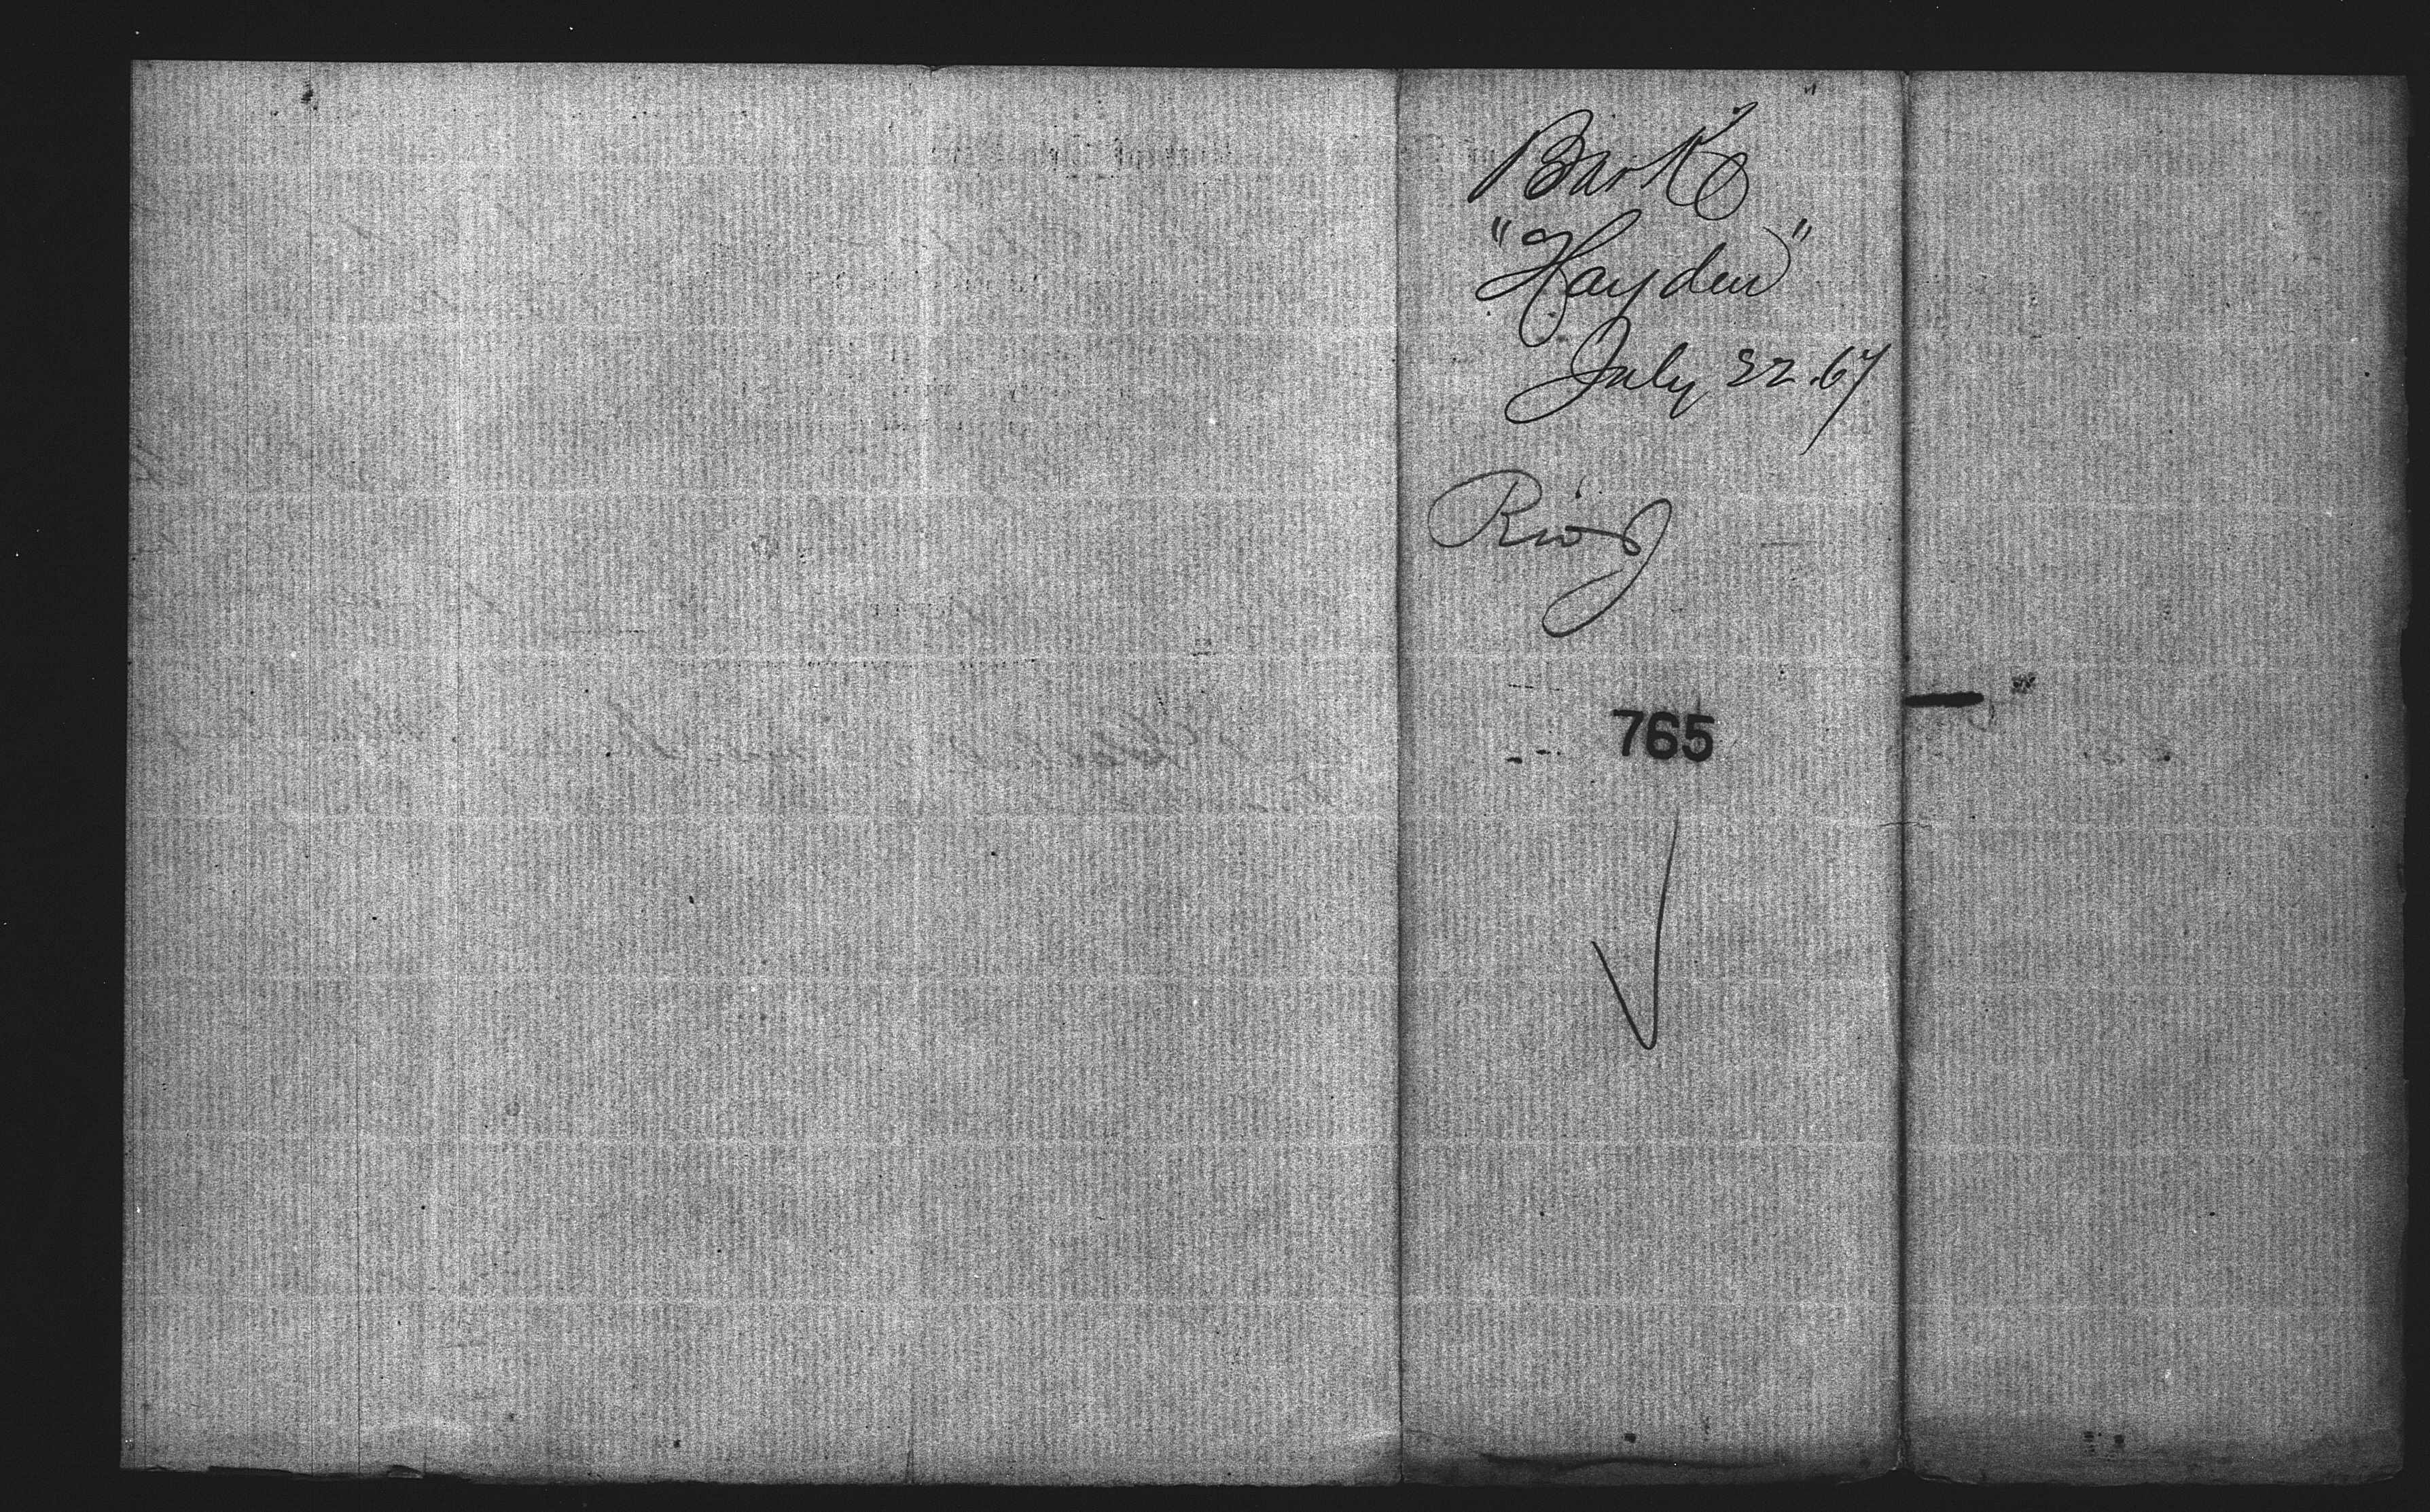 Bark
"Hayden"
July 22.67
Rio J
765